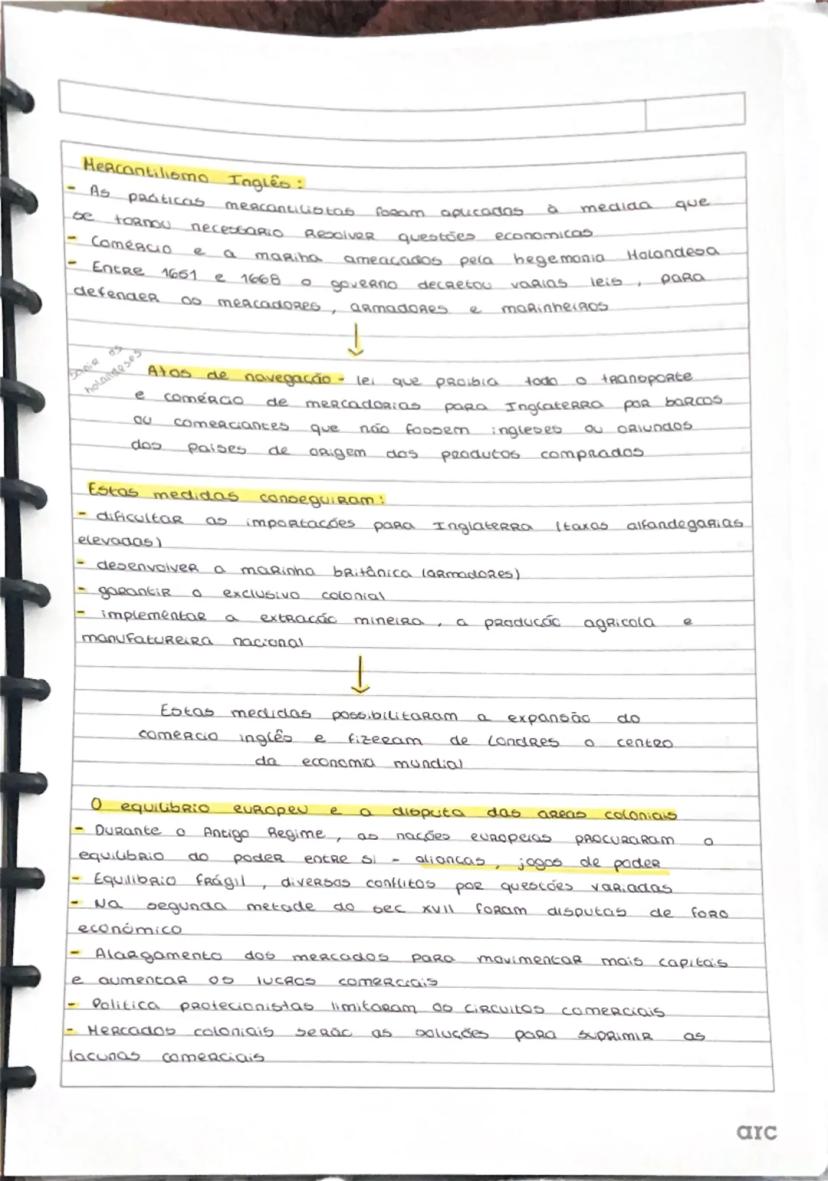 Mercantilismo Inglês:
- As práticas mercantilistas foram aplicadas à medida que
se tornou necessário resolver questões economicas
- Comércio e a mariha ameaçados pela hegemonia Holandesa
- Entre 1651 e 1668 o governo decretou varias leis, para
defender os mercadores, armadores e marinheiros
↓
holandeses
Atos de navegação - lei que proibia todo o transporte
e comércio de mercadorias para Inglaterra por barcos
ou comerciantes que não fossem ingleses ou oriundos
dos países de origem dos produtos comprados
Estas medidas conseguiram:
- dificultar as importações para Inglaterra (taxas alfandegarias
elevadas)
- desenvolver a marinha britânica (armadores)
- garantir o exclusivo colonial
- implementar a extração mineira, a produção agricola e
manufatureira nacional
↓
Estas medidas possibilitaram a expansão do
comercio inglês e fizeram de Londres o centro
da economia mundial
O equilibrio europeu e a disputa das areas coloniais
- Durante o Antigo Regime, as nações europeias procuraram o
equilibrio do poder entre si - alianças, jogos de poder
- Equilibrio frágil, diversos conflitos por questões variadas
- Na segunda metade do sec XVII foram disputas de foro
económico
- Alargamento dos mercados para movimentar mais capitais
e aumentar os lucros comerciais
- Politica protecionistas limitaram os circuitos comerciais
- Mercados coloniais serão as soluções para suprimir as
lacunas comerciais
arc